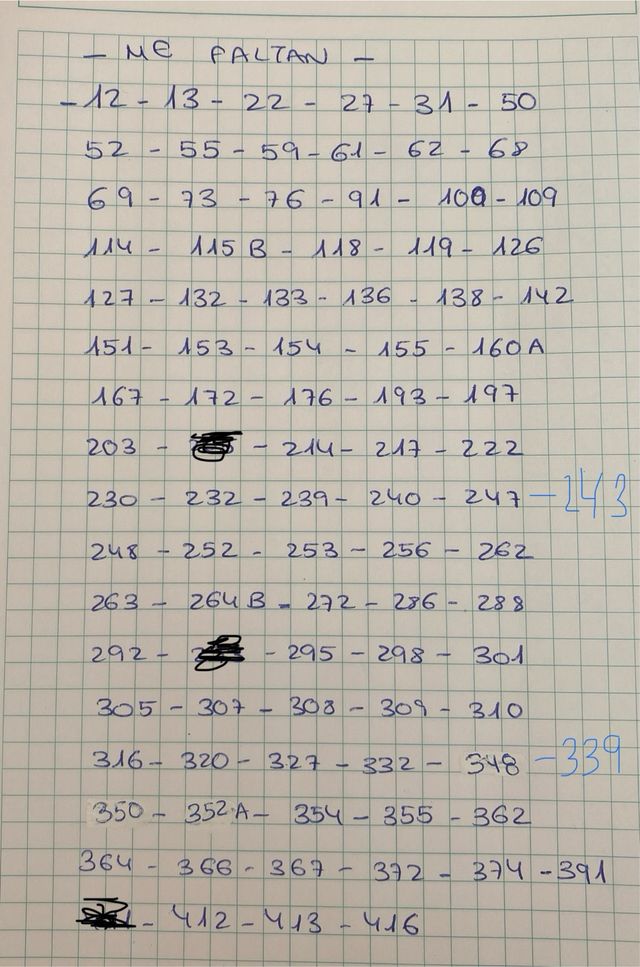 - ME FALTAN -
- 12 - 13 - 22 - 27 - 31 - 50
52 - 55 - 59 - 61 - 62 - 68
69 - 73 - 76 - 91 - 100 - 109
114 - 115 B - 118 - 119 - 126
127 - 132 - 133 - 136 - 138 - 142
151 - 153 - 154 - 155 - 160 A
167 - 172 - 176 - 193 - 197
203 - - 214 - 217 - 222
230 - 232 - 239 - 240 - 247 - 243
248 - 252 - 253 - 256 - 262
263 - 264 B - 272 - 286 - 288
292 - - 295 - 298 - 301
305 - 307 - 308 - 309 - 310
316 - 320 - 327 - 332 - 348 - 339
350 - 352 A - 354 - 355 - 362
364 - 366 - 367 - 372 - 374 - 391
- 412 - 413 - 416